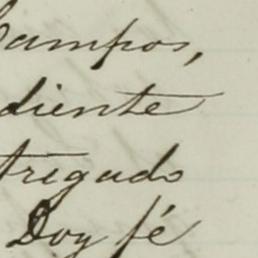 Campos,
diente
trigado
Doy fé